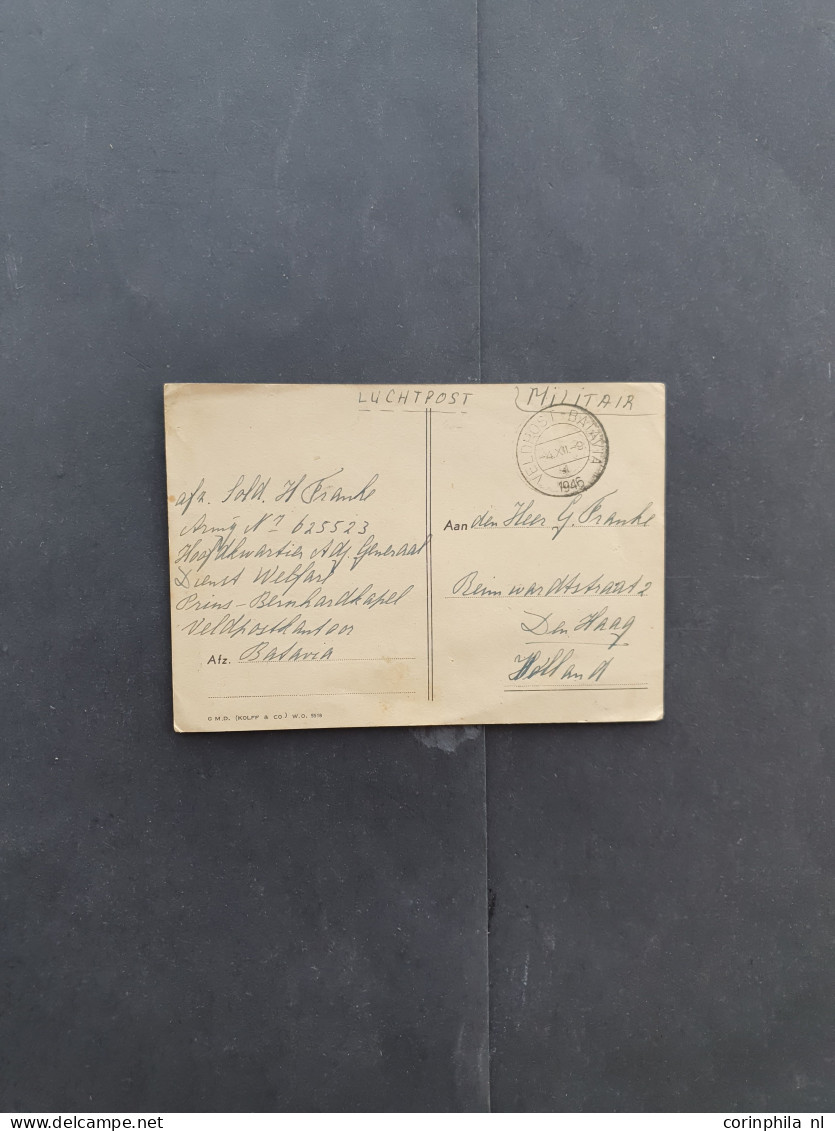 LUCHTPOST
MILITAIR
VELDPOST-BATAVIA
1946
afz. Sold. H Franke
Army No 625523
Hoofdkwartier Adj. Generaal
Dienst Welfare
Prins-Bernhardkapel
Veldpostkantoor
Afz. Batavia
G.M.D. (KOLFF & CO.) W.O.
Aan den Heer G. Franke
Reinwardtstraat 2
Den Haag
Holland
corinphila nl